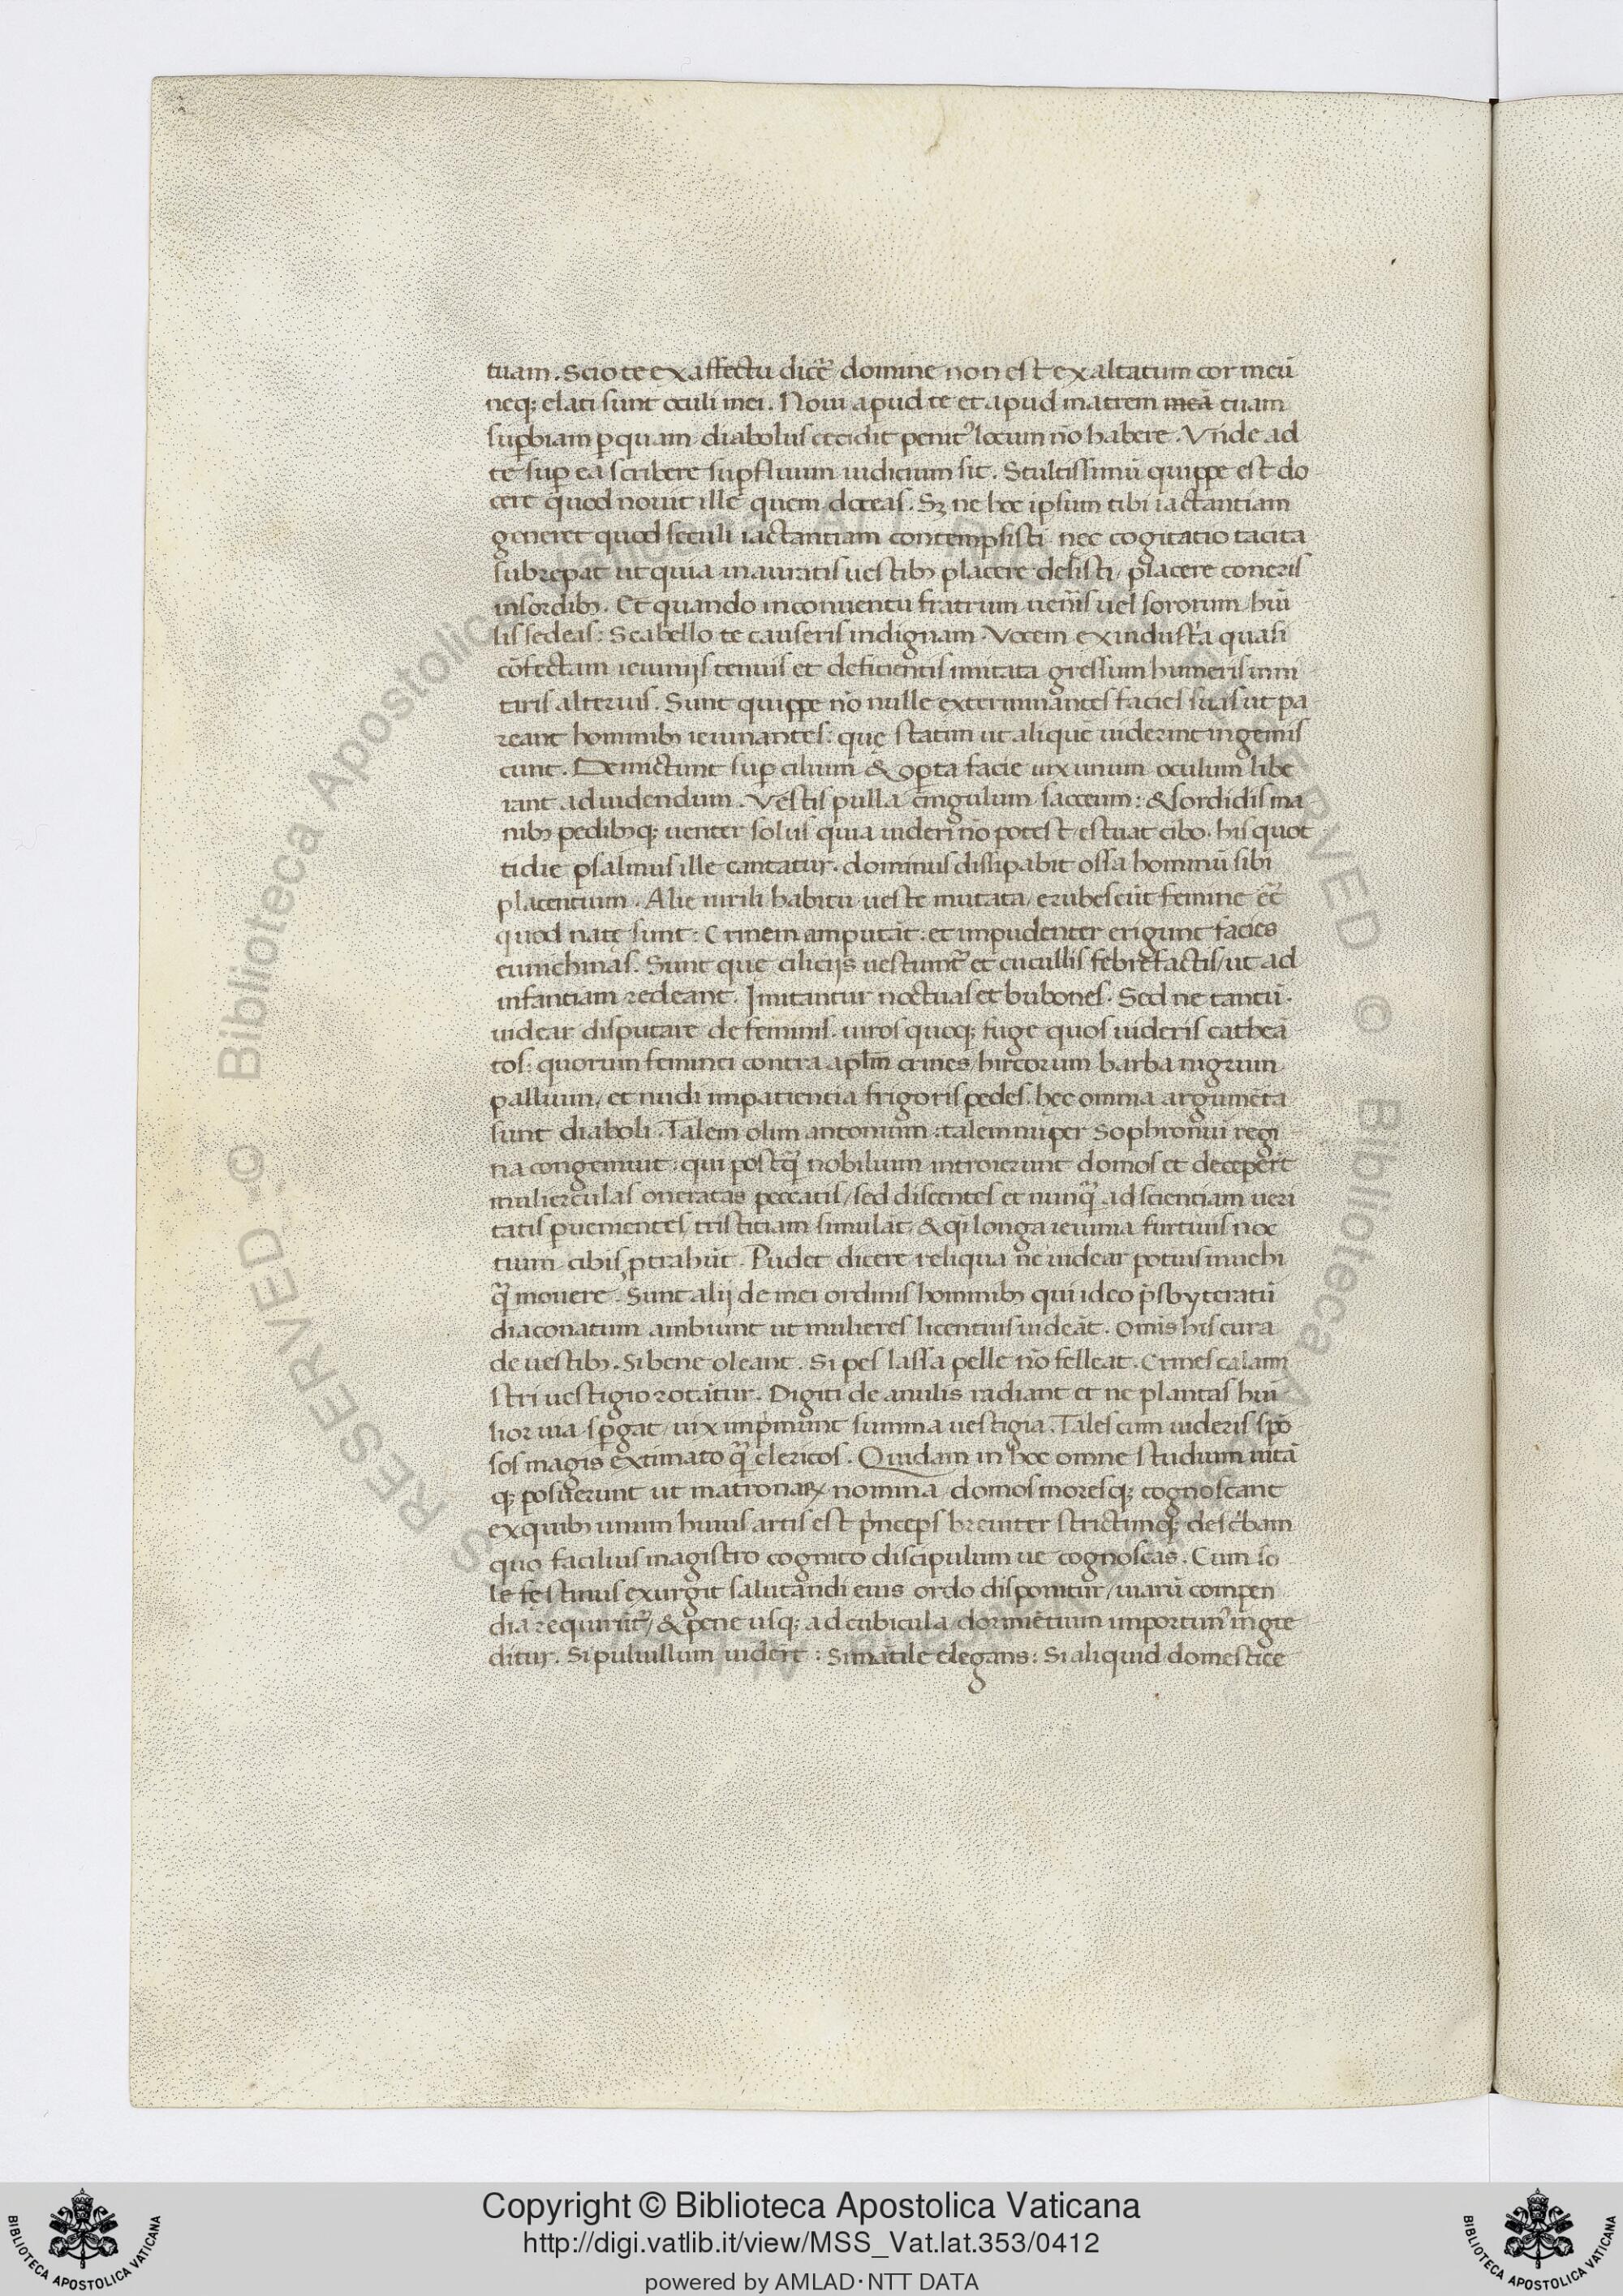 tuam. Scio te ex affectu dicẽ domine non est exaltatum cor meũ
neq; elati sunt oculi mei. Noui apud te et apud matrem meã tuam
suꝑbiam ꝑ quam diabolus cecidit penitꝰ locum nõ habere. Vnde ad
te suꝑ ea scribere suꝑfluum iudicium sit. Stultissimũ quippe est do
cere quod nouit ille quem doceas. Sꝫ ne hoc ipsum tibi iactantiam
generet quod seculi iactantiam contempsisti nec cogitatio tacita
subrepat ut quia in auratis uestibꝫ placere desisti / placere coneris
in sordibꝫ. Et quando in conuentu fratrum uen̄is uel sororum hũi
lis sedeas: Scabello te causeris indignam. Vocem ex industria quasi
cõfectam ieiuniis tenuis et deficientis imitata gressum humeris inni
taris alterius. Sunt quippe nõ nulle exterminantes facies suas ut pa
reant hominibꝫ ieiunantes: quę statim ut aliquẽ uiderint ingemis
cunt. Demictunt suꝑcilium & oꝑta facie uix unum oculum libe
rant ad uidendum. Vestis pulla cingulum sacceum: & sordidis ma
nibꝫ pedibꝫq; uenter solus quia uideri nõ potest / estuat cibo. his quot
tidie psalmus ille cantatur. dominus dissipabit ossa hominũ sibi
placentium. Alię uirili habitu ueste mutata / erubescũt femine eẽ
quod natę sunt: Crinem amputãt: et impudenter erigunt facies
eunichinas. Sunt quę ciliciis uestiunt̃ et cucullis febrefactis / ut ad
infantiam redeant. Imitantur noctuas et bubones. Sed ne tantũ
uidear disputare de feminis. uiros quoq; fuge quos uideris cathẽa
tos: quorum feminei contra aplm̃ crines / hircorum barba nigrum
pallium / et nudi impatientia frigoris pedes. hęc omnia argumẽta
sunt diaboli. Talem olim antonium: talem nuper Sophronium regi
na congemuit: qui postq̃ nobilium introierunt domos et deceper̃t
mulierculas oneratas peccatis / sed discentes et nunq̃ ad scientiam ueri
tatis ꝑuenientes / tristiciam simulãt / & q̃i longa ieiunia furtiuis noc
tium cibis ꝓtrahũt. Pudet dicere reliqua ne uidear potius inuehi
q̃ monere. Sunt alij de mei ordinis hominibꝫ qui ideo p̃sbyteratũ
diaconatum ambiunt ut mulieres licentius uideãt. Omĩs his cura
de uestibꝫ. Si bene oleant. Si pes lassa pelle nõ felleat. Crines calami
stri uestigio rotãtur. Digiti de anulis radiant et ne plantas hũi
lior uia sꝑgat / uix imp̃munt summa uestigia. Tales cum uideris spõ
sos magis extimato q̃ clericos. Quidam in hoc omne studium uitã
q; posuerunt ut matronaꝝ nomina domos moresq; cognoscant
ex quibꝫ unum huius artis est p̃nceps breuiter strictimq; desc̃bam
quo facilius magistro cognito discipulum ue cognoscas. Cum so
le festinus exurgit salutandi eius ordo disponitur / uiarũ compen
dia requirũt̃ / & pene usq; ad cubicula dormiẽtium importunꝰ ingre
ditur. Si puluillum uider̃t: Si mãtile elegans: Si aliquid domestice
Copyright © Biblioteca Apostolica Vaticana
http://digi.vatlib.it/view/MSS_Vat.lat.353/0412
powered by AMLAD·NTT DATA